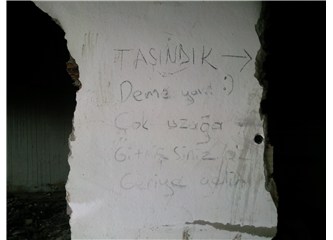 TAŞINDIK →
Deme ya :)
Çok uzağa
Gitmişsiniz
Geriye